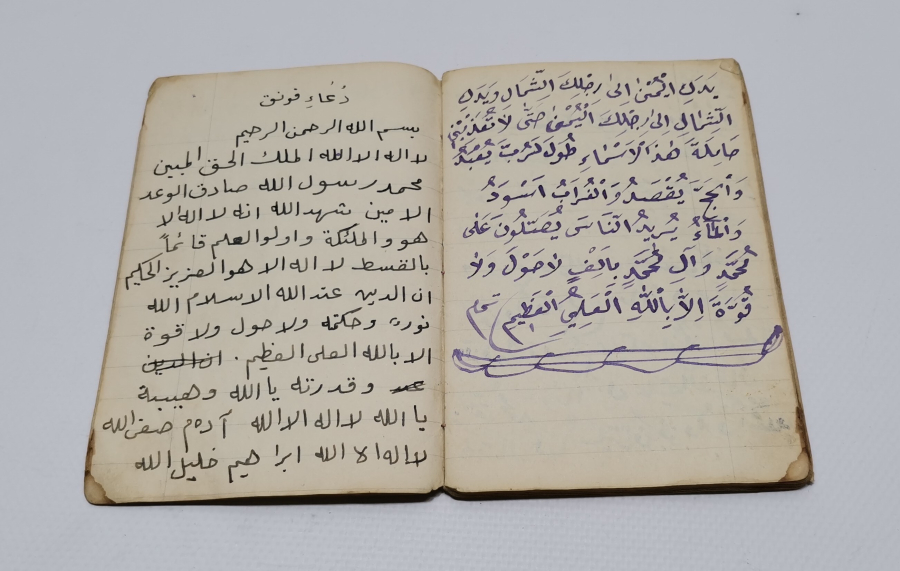 يَدِكِ الْيُمْنىٰ الىٰ رِجْلِكَ الشِّمَالِ وَيَدِكِ
الشِّمَالِ اِلىٰ رِجْلِكَ الْيُمْنىٰ حَتّٰى لَا
حَامِلَةَ هٰذَا لْاَسْمَاءِ طُولَ يُعْبَدُ
وَالْحَجَّ يُقْصَدُ وَالْغُرَابُ اَسْوَدُ
وَالْمَآءُ يُرِيدُ النَّاسَ عَلٰى
مُحَمَّدٍ وَآلَ مُحَمَّدٍ بِاَلْفٍ لاحَوْلَ وَلاَ
قُوَّةَ اِلاَّ بِاللهِ الْعَلِيِ الْعَظِيمِ تمام
دُعَاءِ فونق
بسم الله الرحمن الرحيم
لا اله الا الله الملك الحق المبين
محمد رسول الله صادق الوعد
الامين شهد الله انه لا اله الا
هو والملئكة واولو العلم قائماً
بالقسط لا اله الا هو العزيز الحكيم
ان الدين عند الله الاسلام الله
نوره وحكمه ولا حول ولا قوة
الا بالله العلى العظيم . ان الدين
عند وقدرته يا الله وهيبية
يا الله لا اله الا الله آدم صفى الله
لا اله الا الله ابراهيم خليل الله